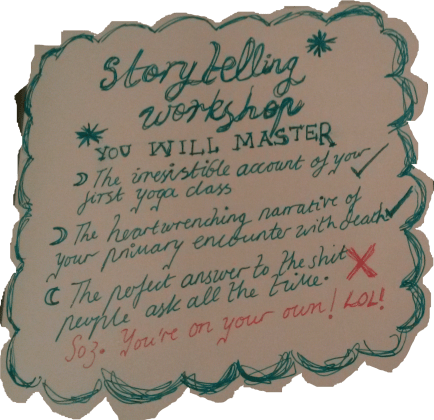 storytelling
workshop
YOU WILL MASTER
The irresistible account of your
first yoga class
The heartwrenching narrative of
your primary encounter with death
The perfect answer to the shit
people ask all the time.
Soz. You're on your own! LOL!